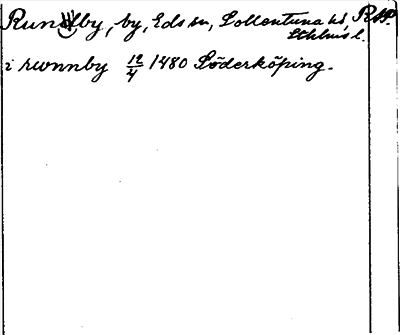 Runsby, by, Eds sn, Sollentuna hd,
Sthlms l.
i rwnnby 12/4 1480 Söderköping.